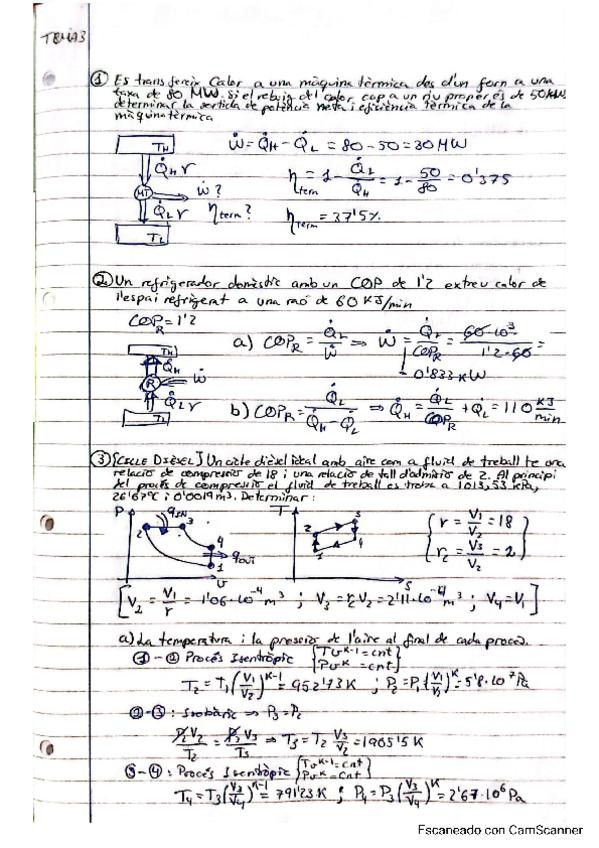 TEMA 3
① Es transfereix Calor a una màquina tèrmica des d'un forn a una
taxa de 80 MW. Si el rebuig del calor cap a un riu proper és de 50MW,
determinar la sortida de potència neta i eficiència tèrmica de la
màquina tèrmica
TH
Q̇H
MT
Q̇L
TL
Ẇ ?
ηterm ?
Ẇ = Q̇H − Q̇L = 80 − 50 = 30 MW
ηterm = 1 − Q̇L/Q̇H = 1 − 50/80 = 0'375
ηterm = 37'5%
② Un refrigerador domèstic amb un COP de 1'2 extreu calor de
l'espai refrigerat a una raó de 60 KJ/min
COPR = 1'2
TH
Q̇H
R
Ẇ
Q̇L
TL
a) COPR = Q̇L/Ẇ ⇒ Ẇ = Q̇L/COPR = 60·10³/1'2·60 =
= 0'833 KW
b) COPR = Q̇L/Q̇H − Q̇L ⇒ Q̇H = Q̇L/COPR + Q̇L = 110 KJ/min
③ [CICLE DIÈSEL] Un cicle dièsel ideal amb aire com a fluid de treball té una
relació de compressió de 18 i una relació de tall d'admisió de 2. Al principi
del procés de compressió el fluid de treball es troba a 1013,53 kPa,
26'67ºC i 0'0019 m³. Determinar:
P
qIN
2
3
4
1
qOUT
v
T
2
3
1
4
S
{ r = V1/V2 = 18
rc = V3/V2 = 2 }
[V2 = V1/r = 1'06·10⁻⁴ m³ ; V3 = rcV2 = 2'11·10⁻⁴ m³ ; V4 = V1]
a) La temperatura i la pressió de l'aire al final de cada procés.
①-② Procés Isentròpic {Tv^K-1 = cnt
Pv^K = cnt}
T2 = T1 (V1/V2)^K-1 = 952'73 K ; P2 = P1 (V1/V2)^K = 5'8·10⁷ Pa
②-③ : Isobàric ⇒ P3 = P2
P2V2/T2 = P3V3/T3 ⇒ T3 = T2 V3/V2 = 1905'5 K
③-④ : Procés Isentròpic {Tv^K-1 = cnt
Pv^K = cnt}
T4 = T3 (V3/V4)^K-1 = 791'23 K ; P4 = P3 (V3/V4)^K = 2'67·10⁶ Pa
Escaneado con CamScanner